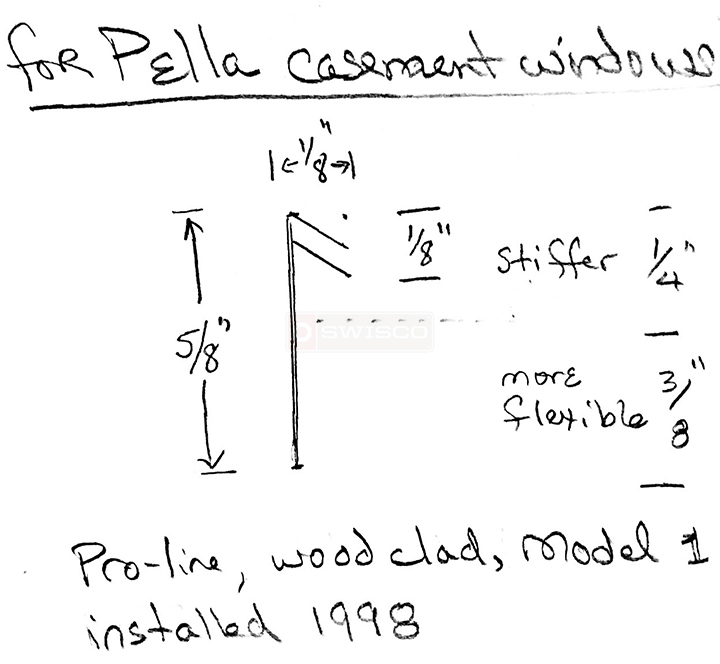 for Pella casement windows
1/8"
1/8"
stiffer 1/4"
SWISCO
5/8"
more
flexible 3/8"
Pro-line, wood clad, Model 1
installed 1998